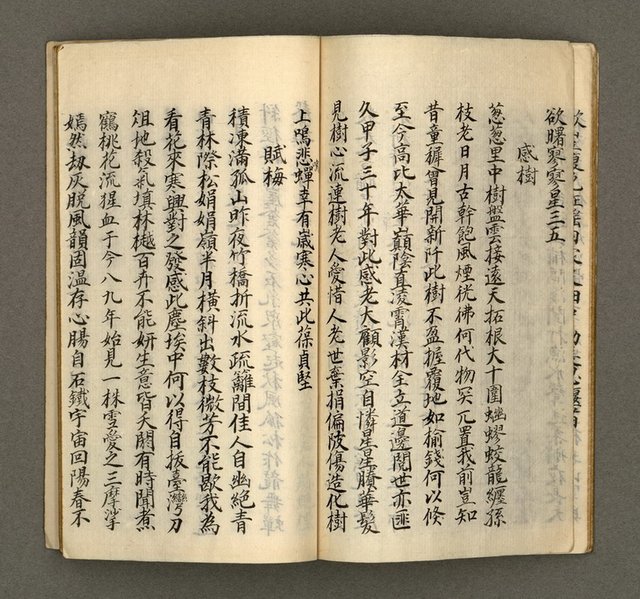 欲曙寥寥星三五
感樹
蔥蔥里中樹盤雲接遠天拓根大十圍蚴蟉蛟龍纏孫
枝老日月古幹飽風煙恍彿何代物突兀置我前豈知
昔童穉曾見開新阡此樹不盈握覆地如榆錢何以倏
至今高比太華巔陰直凌霄漢材全立道邊閱世亦匪
久甲子三十年對此感老大顧影空自憐星星賸華髮
見樹心流連樹老人愛惜人老世棄捐偏陂傷造化樹
上鳴悲蟬幸有歲寒心共此葆貞堅
賦梅
積凍滿孤山昨夜竹橋折流水疏籬間佳人自幽絕青
青林際松娟娟嶺半月橫斜出數枝微芳不能歇我為
看花來寒興對之發感此塵埃中何以得自拔臺灣刀
俎地殺氣填林樾百卉不能妍生意皆夭閼有時聞煮
鶴桃花流猩血于今八九年始見一株雪愛之三摩挲
嫣然劫灰脫風韻固溫存心腸自石鐵宇宙回陽春不